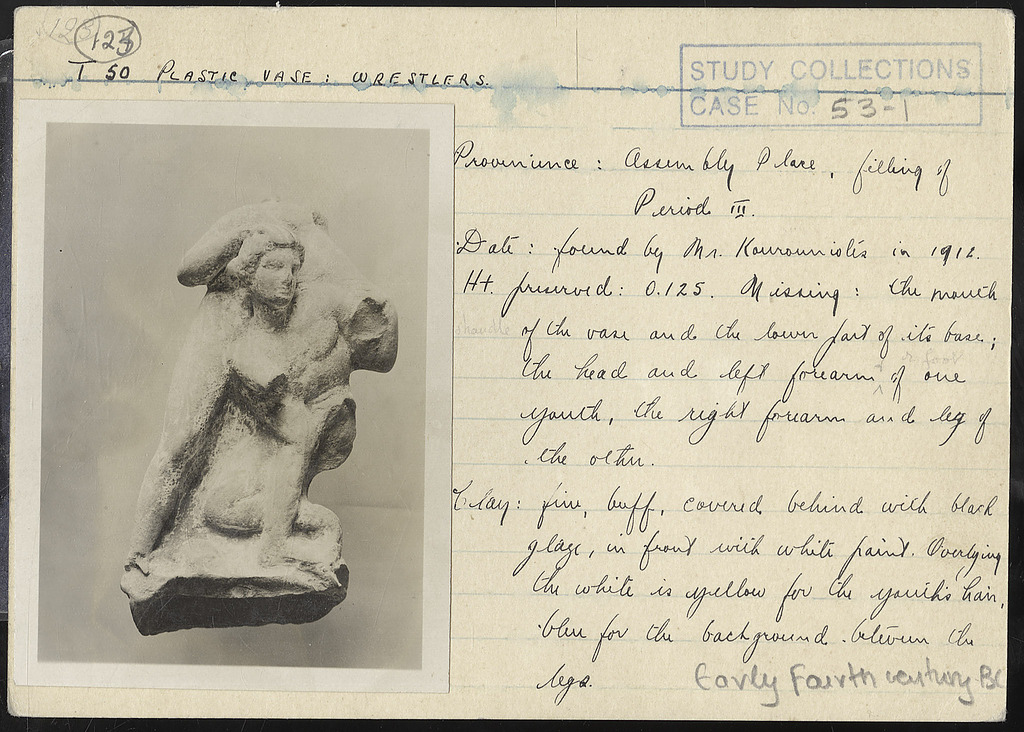 123
123
T 50 PLASTIC VASE: WRESTLERS.
STUDY COLLECTIONS
CASE No. 53-1
Provenience: Assembly Place, filling of
Period III.
Date: found by Mr. Kourouniotis in 1912.
Ht. preserved: 0.125. Missing: the mouth
& handle
of the vase and the lower part of its base;
or foot
the head and left forearm ^ of one
youth, the right forearm and leg of
the other.
Clay: fine, buff, covered behind with black
glaze, in front with white paint. Overlying
the white is yellow for the youth's hair,
blue for the background between the
legs.
Early Fourth century BC